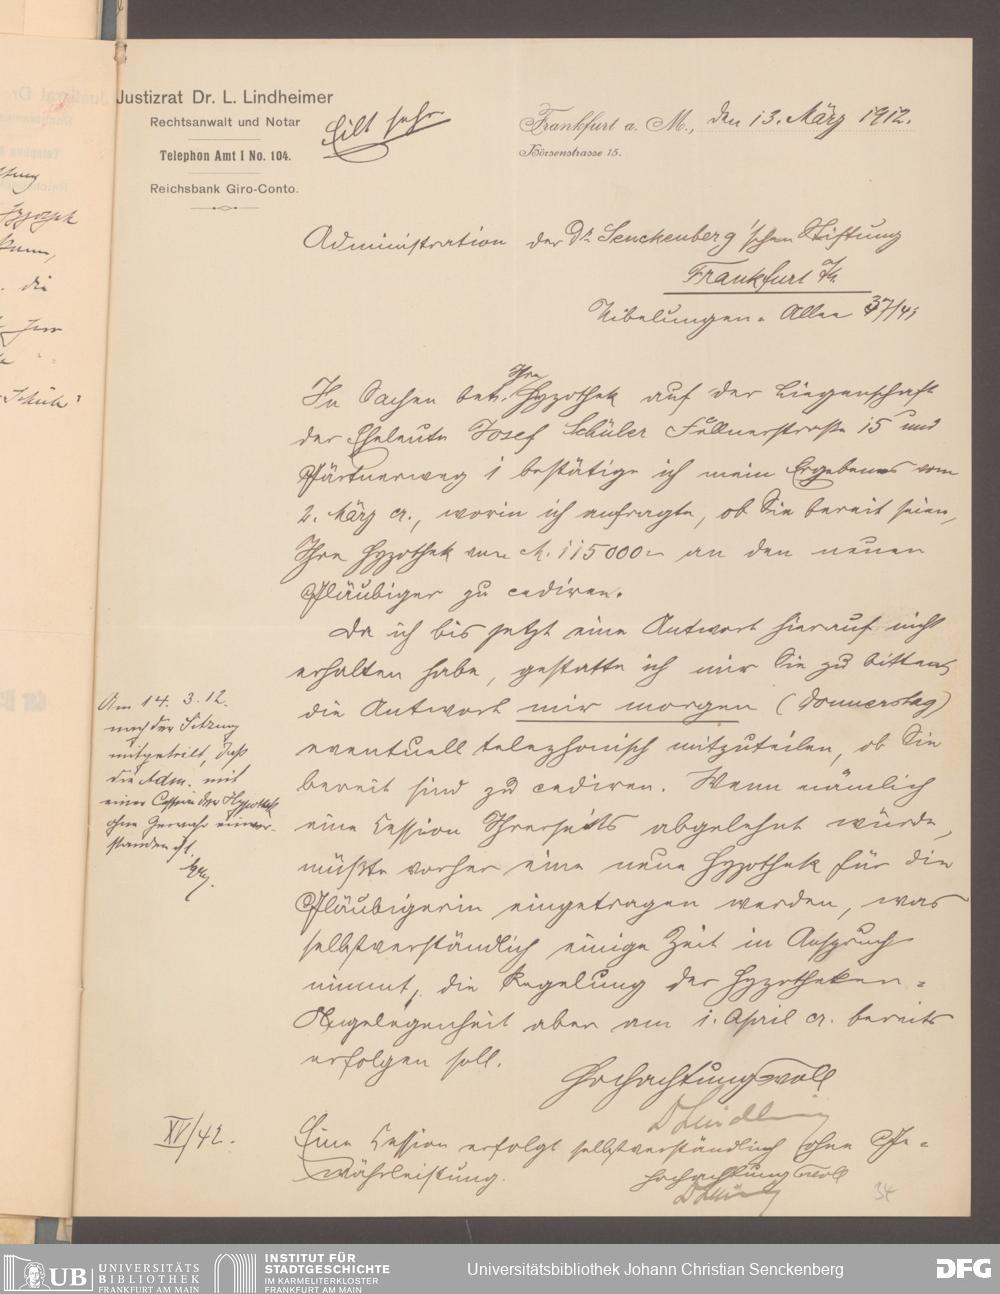 Justizrat Dr. L. Lindheimer
Rechtsanwalt und Notar
Telephon Amt I No. 104.
Reichsbank Giro-Conto.
Eilt sehr
Frankfurt a. M., den 13. März 1912.
Börsenstrasse 15.
Administration der Dr. Senckenberg'schen Stiftung
Frankfurt a/M.
Nibelungen-Allee 37/41
In Sachen betr. Ihre Hypothek auf der Liegenschaft
der Eheleute Josef Schüler Fellnerstraße 15 und
Gärtnerweg 1 bestätige ich mein Ergebenes vom
2. März cr., worin ich anfragte, ob Sie bereit seien,
Ihre Hypothek von M. 115000.- an den neuen
Gläubiger zu cediren.
Da ich bis jetzt eine Antwort hierauf nicht
erhalten habe, gestatte ich mir Sie zu bitten,
die Antwort mir morgen (Donnerstag)
eventuell telephonisch mitzuteilen, ob Sie
bereit sind zu cediren. Wenn nämlich
eine Cession Ihrerseits abgelehnt würde,
müßte vorher eine neue Hypothek für die
Gläubigerin eingetragen werden, was
selbstverständlich einige Zeit in Anspruch
nimmt, die Regelung der Hypotheken-
Angelegenheit aber am 1. April cr. bereits
erfolgen soll.
Hochachtungsvoll
Eine Cession erfolgt selbstverständlich ohne Ge-
währleistung.
Hochachtungsvoll
Am 14. 3. 12.
nach der Sitzung
mitgeteilt, daß
die Adm. mit
einer Cession der Hypothek
ohne Gewähr einver-
standen ist.
XV/42.
34
UB UNIVERSITÄTS
BIBLIOTHEK
FRANKFURT AM MAIN
INSTITUT FÜR
STADTGESCHICHTE
IM KARMELITERKLOSTER
FRANKFURT AM MAIN
Universitätsbibliothek Johann Christian Senckenberg
DFG